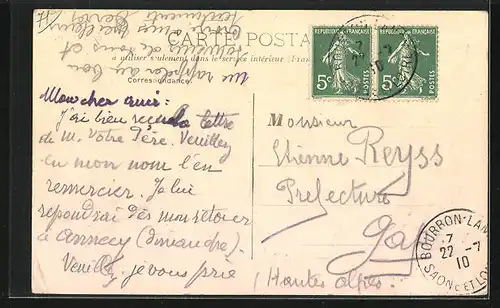 CARTE POSTA
à utiliser seulement dans le service intérieur (Fran
Correspondance
REPUBLIQUE FRANÇAISE REPUBLIQUE FRANÇAISE
5c POSTES 5c POSTES
Mon cher ami:
J'ai bien reçu la lettre
de M. Votre Père. Veuillez
en mon nom l'en
remercier. Je lui
repondrai dès mon retour
à Annecy (dimanche).
Veuillez, je vous prie
me rappeler au bon
souvenir de tous et
Monsieur
Etienne Reyss
Prefecture
Gap
(Hautes Alpes)
BOURRON-LAN
22 -7
10
SAONE ET LOI